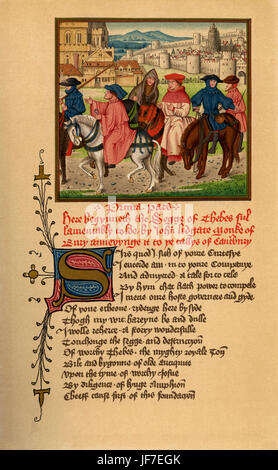 Prima pars
Here begynneth the Segge of Thebes ful
lamentably tolde by John lidgate Monke of
Bury anneryng it to þe tallys of Caũtbury
Sirs quod I sith of youre Curtesye
I entrede am in to youre Companye
And admytted a tale for to telle
By hym that hath power to compelle
I mene oure hoste governere and gyde
Of youre echone rydenge here by syde
Thogh my wit barayne be and dulle
I wolle reherce a story wonderfulle
Touchynge the segge and destruccyon
Of worthy Thebes the myghty royale Toñ
Bilt and bygonne of olde antiquite
Upon the tyme of worthy Josue
By diligence of kynge Amphion
Cheef cause first of this foundacion
alamy
Image ID: JF7EGK
www.alamy.com